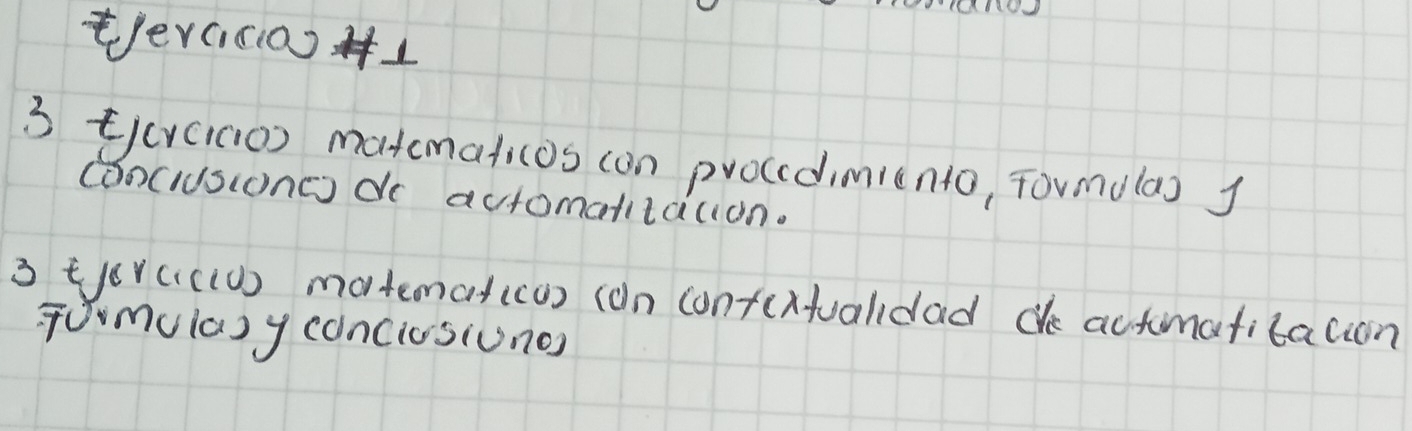 Ejercicios #1
3 Ejercicios matematicos con procedimiento, Formulas y
conclusiones de automatización.
3 Ejercicios matematicos con contextualidad de automatización
Formulas y conclusiones